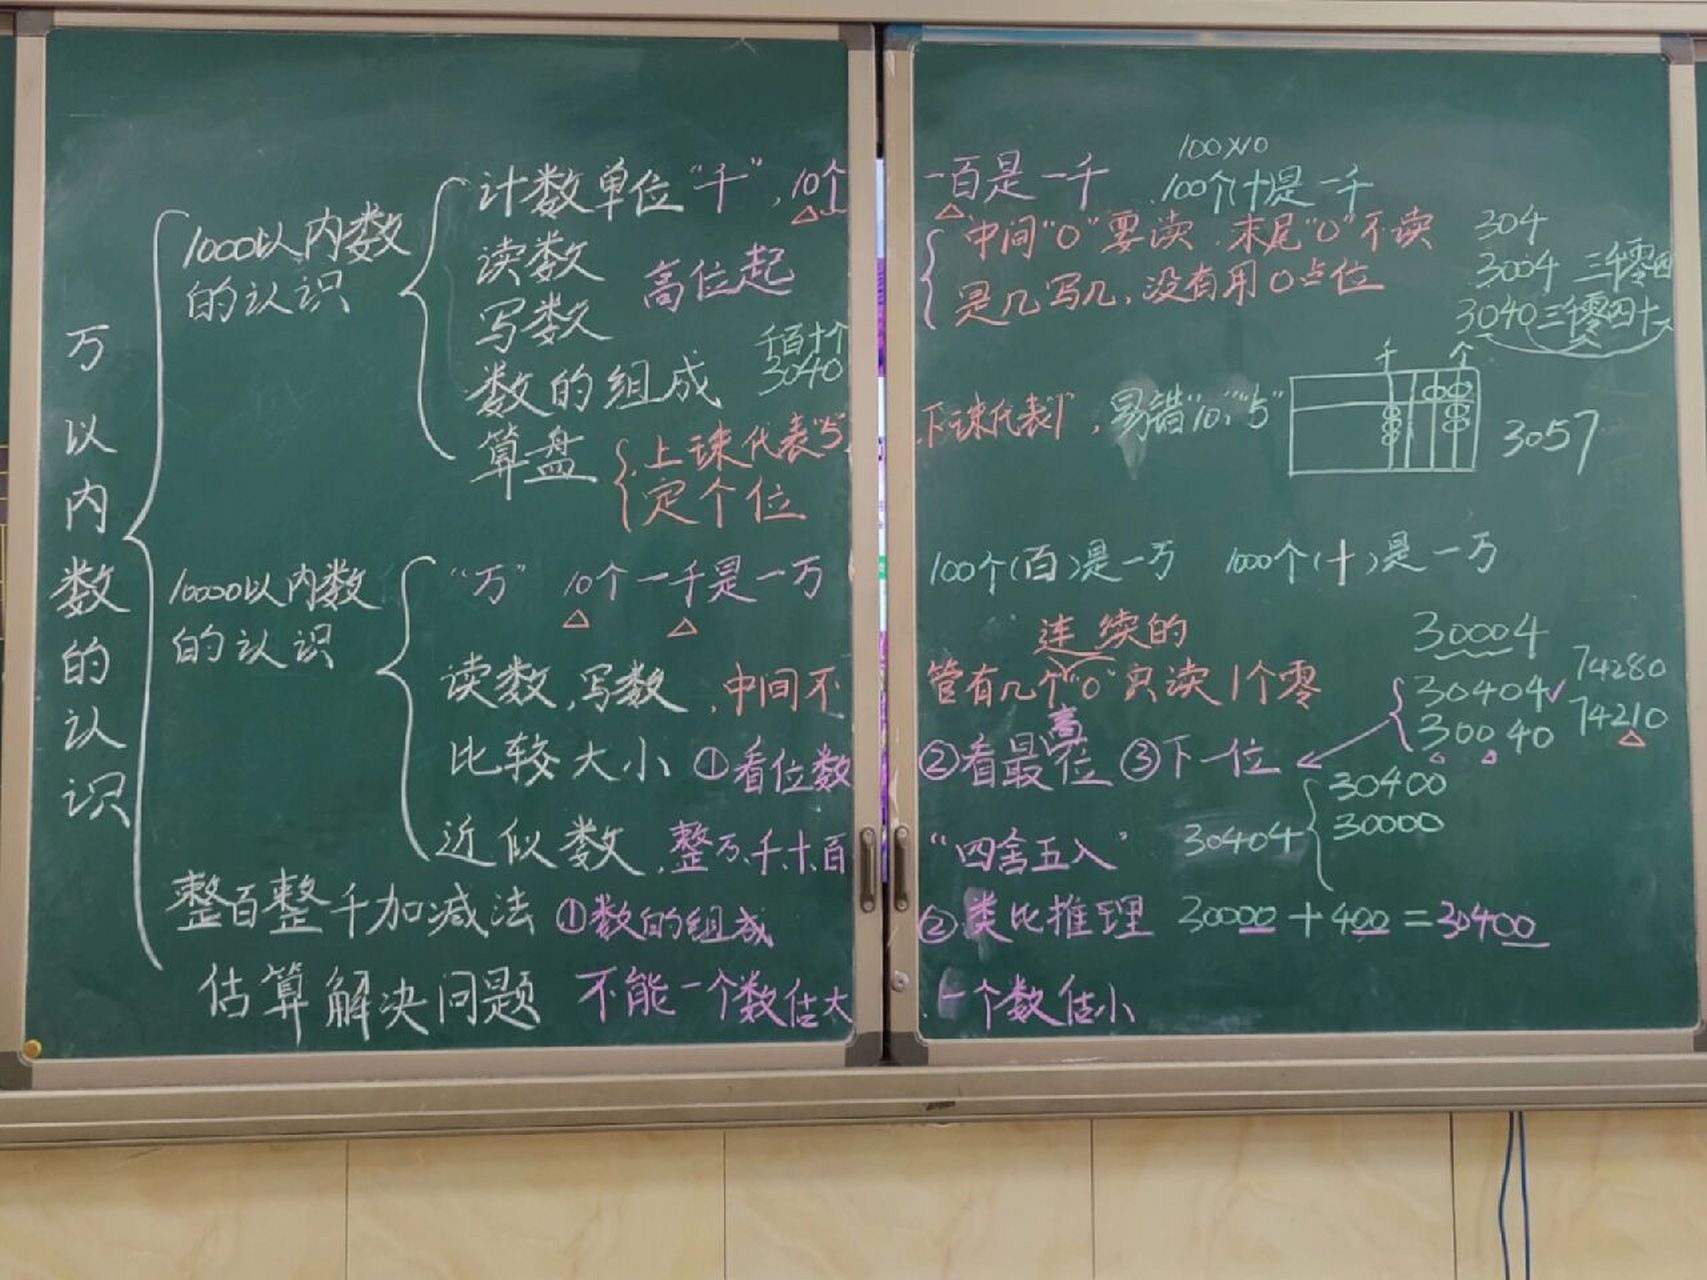 万以内数的认识
1000以内数的认识
计数单位"千",10个一百是一千
100×10
100个十是一千
读数
写数
高位起
中间"0"要读.末尾"0"不读
是几写几,没有用0占位
304
3004 三千零四
3040 三千零四十
数的组成
千百十个
3040
算盘
上珠代表"5",下珠代表"1",易错"10""5"
定个位
千 个
3057
10000以内数的认识
"万" 10个一千是一万
100个(百)是一万 1000个(十)是一万
读数,写数,中间不管有几个"0"只读1个零
连续的
30004
30404✓
30040
74280
74210
比较大小 ①看位数 ②看最高位 ③下一位
近似数,整万、千、十、百 "四舍五入"
30404
30400
30000
整百整千加减法 ①数的组成 ②类比推理 30000+400=30400
估算解决问题 不能一个数估大.一个数估小